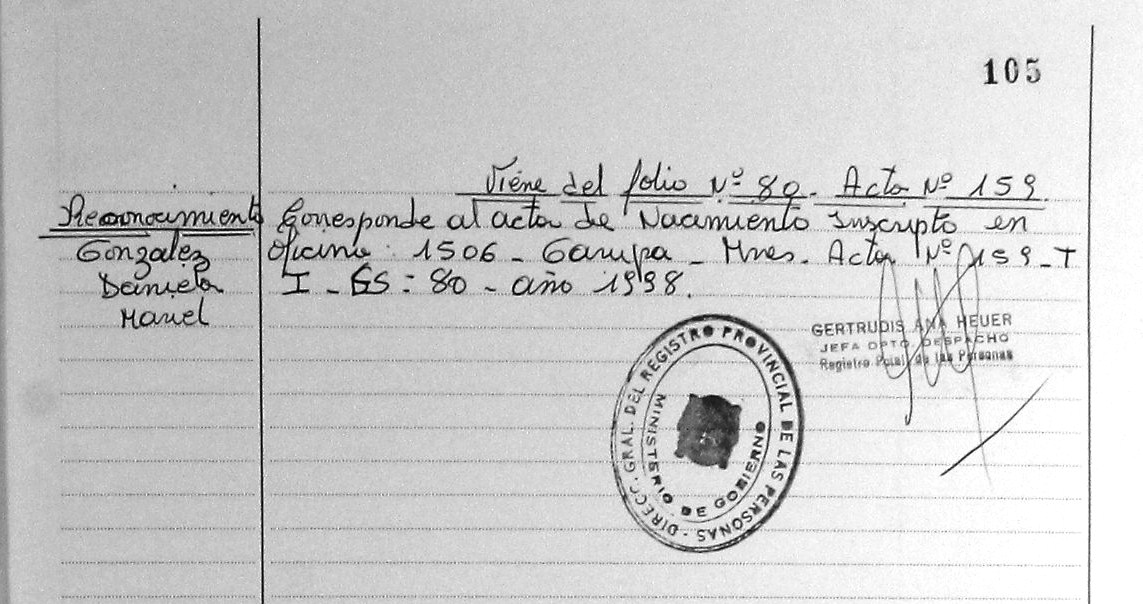 105
Viene del folio Nº 80. Acta Nº 159
Reconocimiento
Gonzalez
Daniela
Mariel
Corresponde al acta de Nacimiento Inscripto en
Oficina: 1506 - Garupa - Mnes. Acta Nº 159 - T
I - Es: 80 - año 1998.
GERTRUDIS ANA HEUER
JEFA DPTO. DESPACHO
Registro Pcial. de las Personas
DIRECC. GRAL. DEL REGISTRO PROVINCIAL DE LAS PERSONAS -
MINISTERIO DE GOBIERNO